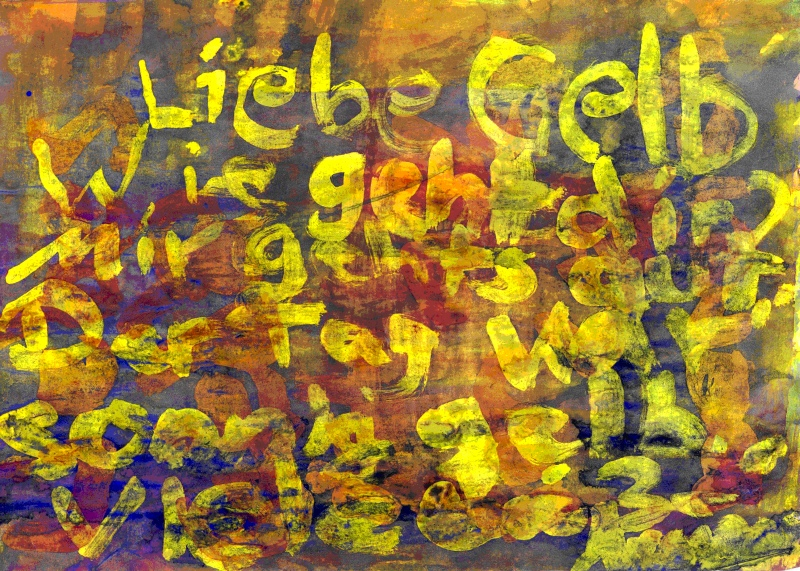 Liebe Gelb
Wie geht dir?
Mir geht's gut
Der Tag war
sonnig gelb